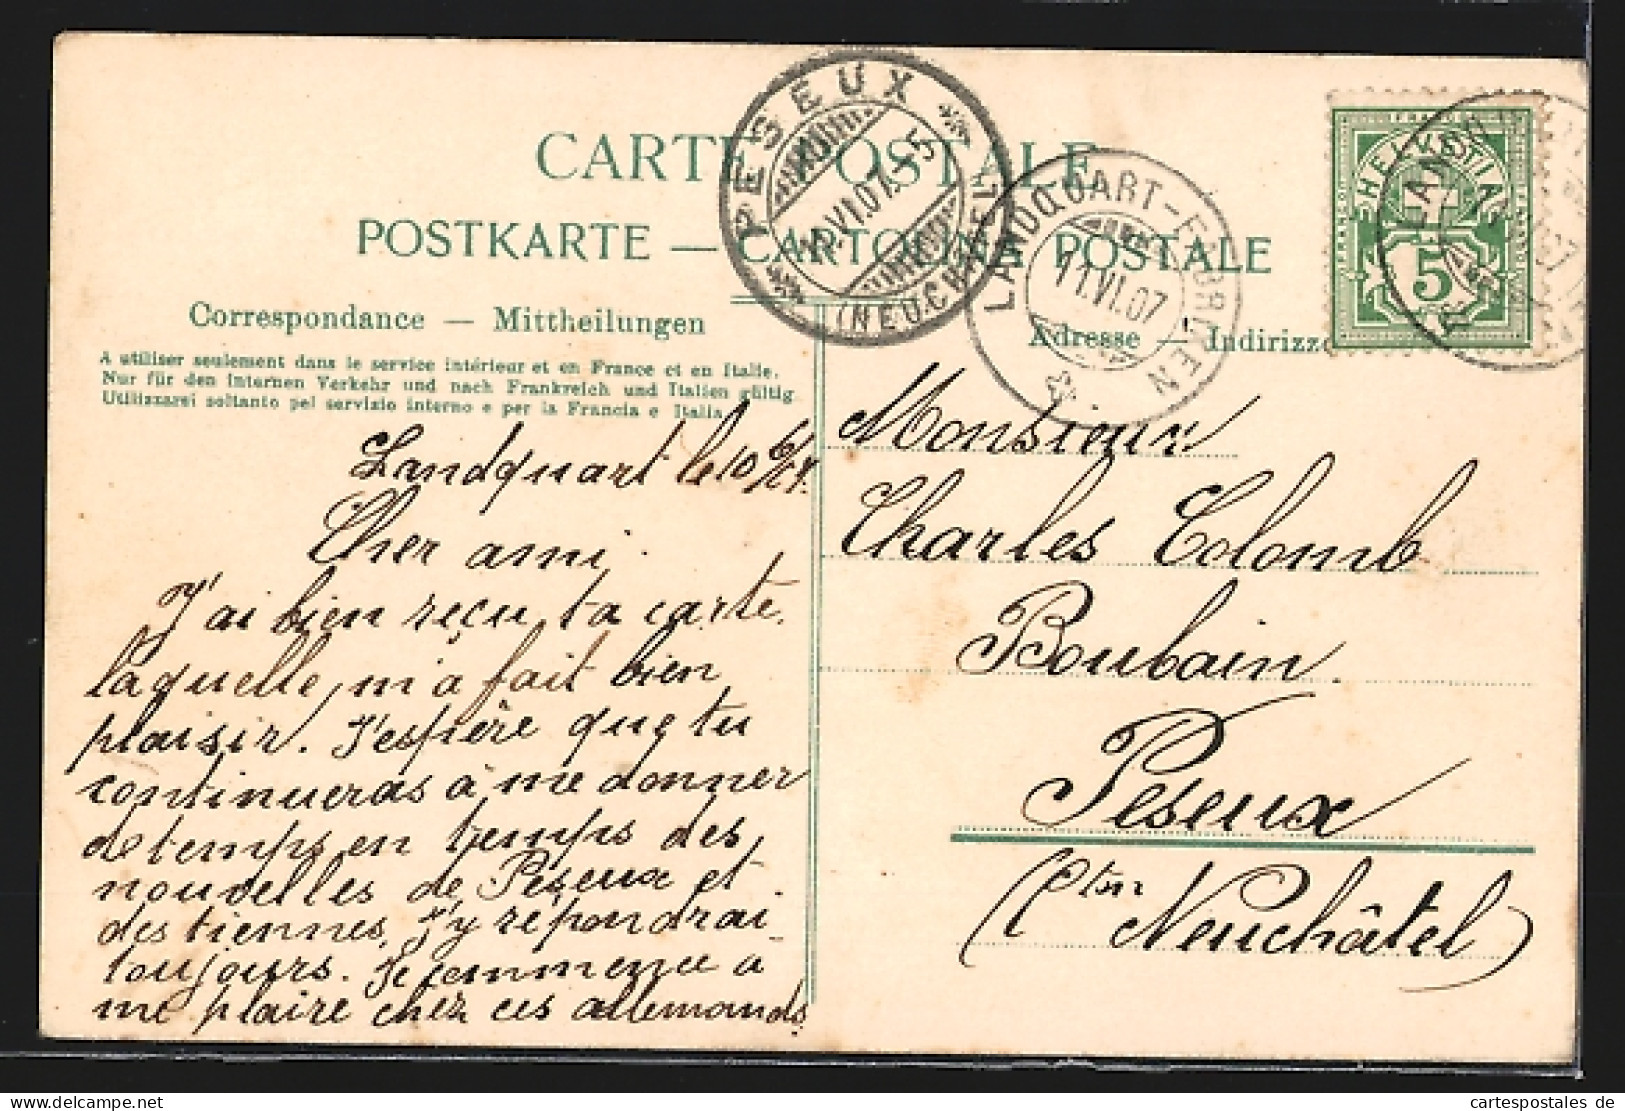 CARTE POSTALE
POSTKARTE — CARTOLINA POSTALE
Correspondance — Mittheilungen
A utiliser seulement dans le service intérieur et en France et en Italie.
Nur für den internen Verkehr und nach Frankreich und Italien gültig
Utilizzarsi soltanto pel servizio interno e per la Francia e Italia
Adresse — Indirizzo
PESEUX
VI.07. -5
(NEUCHÂTEL)
LANDQUART-FABRIKEN
11.VI.07
FRANCO
HELVETIA
5
Landquart le 10/6/07.
Cher ami.
J'ai bien reçu ta carte.
laquelle, m'a fait bien
plaisir. J'espère que tu
continueras à me donner
de temps en temps des
nouvelles de Peseux et
des tiennes, J'y répondrai
toujours. Je commence à
me plaire chez ces allemands
Monsieur
Charles Colomb
Boubain.
Peseux
(Ctn Neuchâtel)
cartespostales de